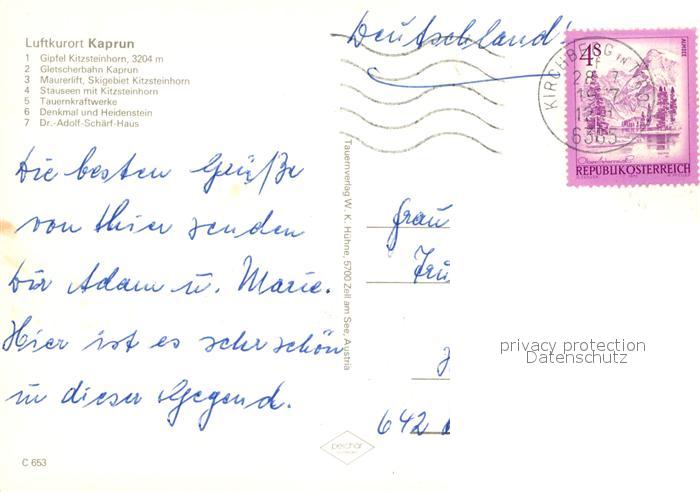 Luftkurort Kaprun
1 Gipfel Kitzsteinhorn, 3204 m
2 Gletscherbahn Kaprun
3 Maurerlift, Skigebiet Kitzsteinhorn
4 Stauseen mit Kitzsteinhorn
5 Tauernkraftwerke
6 Denkmal und Heidenstein
7 Dr.-Adolf-Schärf-Haus
Die besten Grüße
von Hier senden
Dir Adam u. Marie.
Hier ist es sehr schön
in dieser Gegend.
C 653
Tauernverlag W. K. Hühne, 5700 Zell am See, Austria
Deutschland!
4S
ALMSEE
REPUBLIK ÖSTERREICH
KIRCHBERG IN
6365
Frau
642
privacy protection
Datenschutz